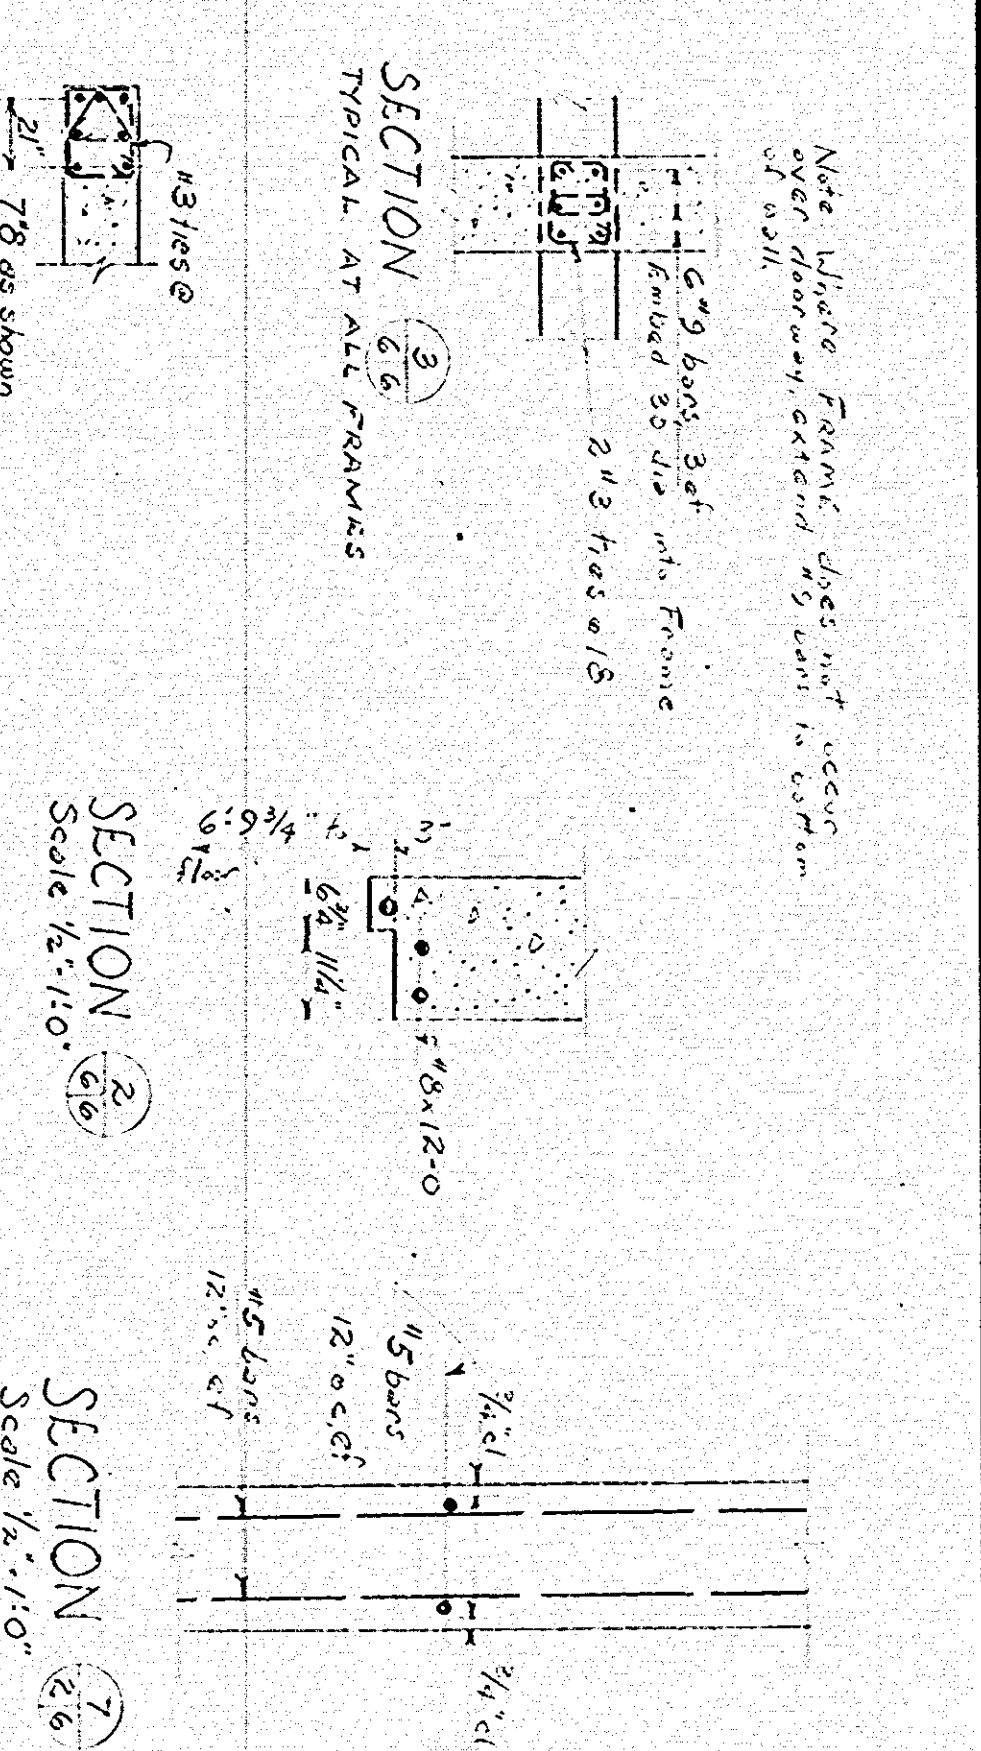 Note Where FRAME does not occur
over doorway, extend #9 bars to bottom
of wall.
6 #9 bars, 3 ef
Embed 30 dia into Frame
2 #3 ties @ 18
SECTION 3
6 6
TYPICAL AT ALL FRAMES
#3 ties @
21"
7 #8 as shown
3"
6'-9 3/4" to
floor
6 3/4" 11 1/4"
#8 x 12-0
SECTION 2
6 6
Scale 1/2"=1'-0"
3/4" cl
#5 bars
12" o.c, ef
#5 bars
12" oc ef
3/4" cl
SECTION 7
2 6
Scale 1/2"=1'-0"